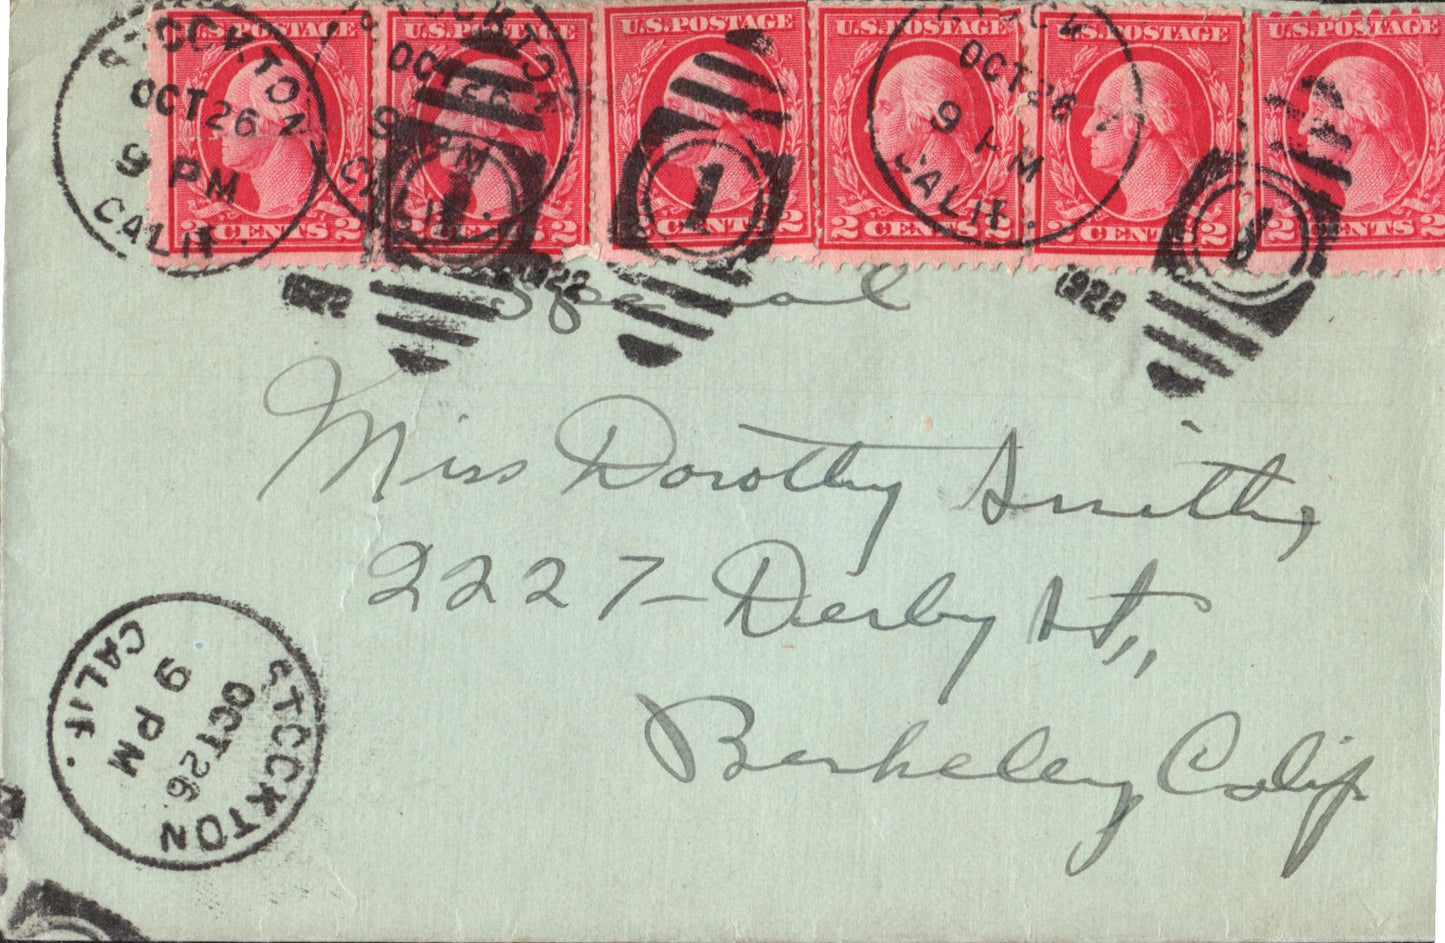 U.S.POSTAGE U.S.POSTAGE U.S.POSTAGE U.S.POSTAGE U.S.POSTAGE U.S.POSTAGE
STOCKTON OCT 26 9 PM CALIF.
STOCKTON OCT 26 9 PM CALIF.
STOCKTON OCT 26 9 PM CALIF.
1 1 1
2 CENTS 2 2 CENTS 2 2 CENTS 2 2 CENTS 2 2 CENTS 2 2 CENTS 2
1922 1922 1922
Special
Miss Dorothy Smith,
2227- Derby St.,
Berkeley Calif
STOCKTON OCT 26 9 PM CALIF.